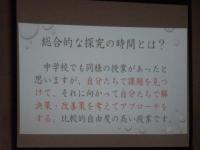 総合的な探究の時間とは？
中学校でも同様の授業があったと
思いますが、自分たちで課題を見つ
けて、それに向かって自分たちで解
決策・改善策を考えてアプローチを
する、比較的自由度の高い授業です